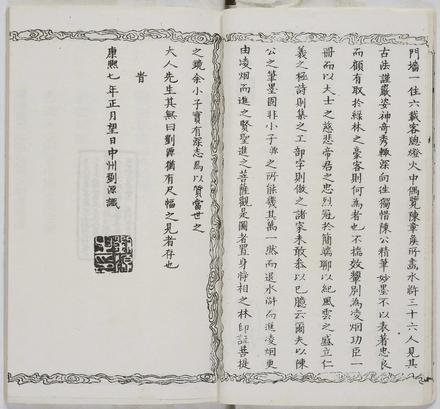 門墻一住六載客牕燈火中偶覽陳章侯所畵水滸三十六人見其
古法謹嚴姿神奇秀輙深向往獨惜陳公精筆妙墨不以表著忠良
而顧有取於綠林之豪客則何為者也不揣效顰別為凌烟功臣一
冊而以大士之慈悲帝君之忠烈冠於簡端聊以紀風雲之盛立仁
義之極詩則集之工部字則倣之諸家未敢忝以已臆云爾夫以陳
公之筆墨固非小子源之所能幾其萬一然而退水滸而進凌烟更
由凌烟而進之賢聖進之菩薩觀是圖者置身將相之林印証菩提
之鏡余小子寶有深志焉以質當世之
大人先生其無曰劉源猶有尺幅之見者存也
旹
康熙七年正月望日中州劉源識